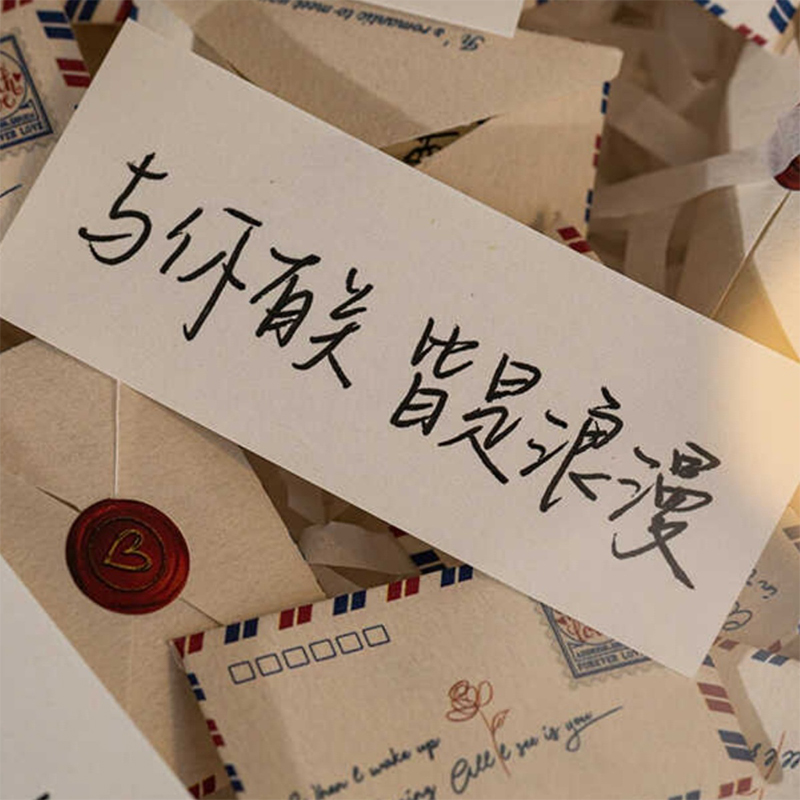 It's romantic to meet you
与你有关 皆是浪漫
FOREVER LOVE
when I wake up
All I see is you